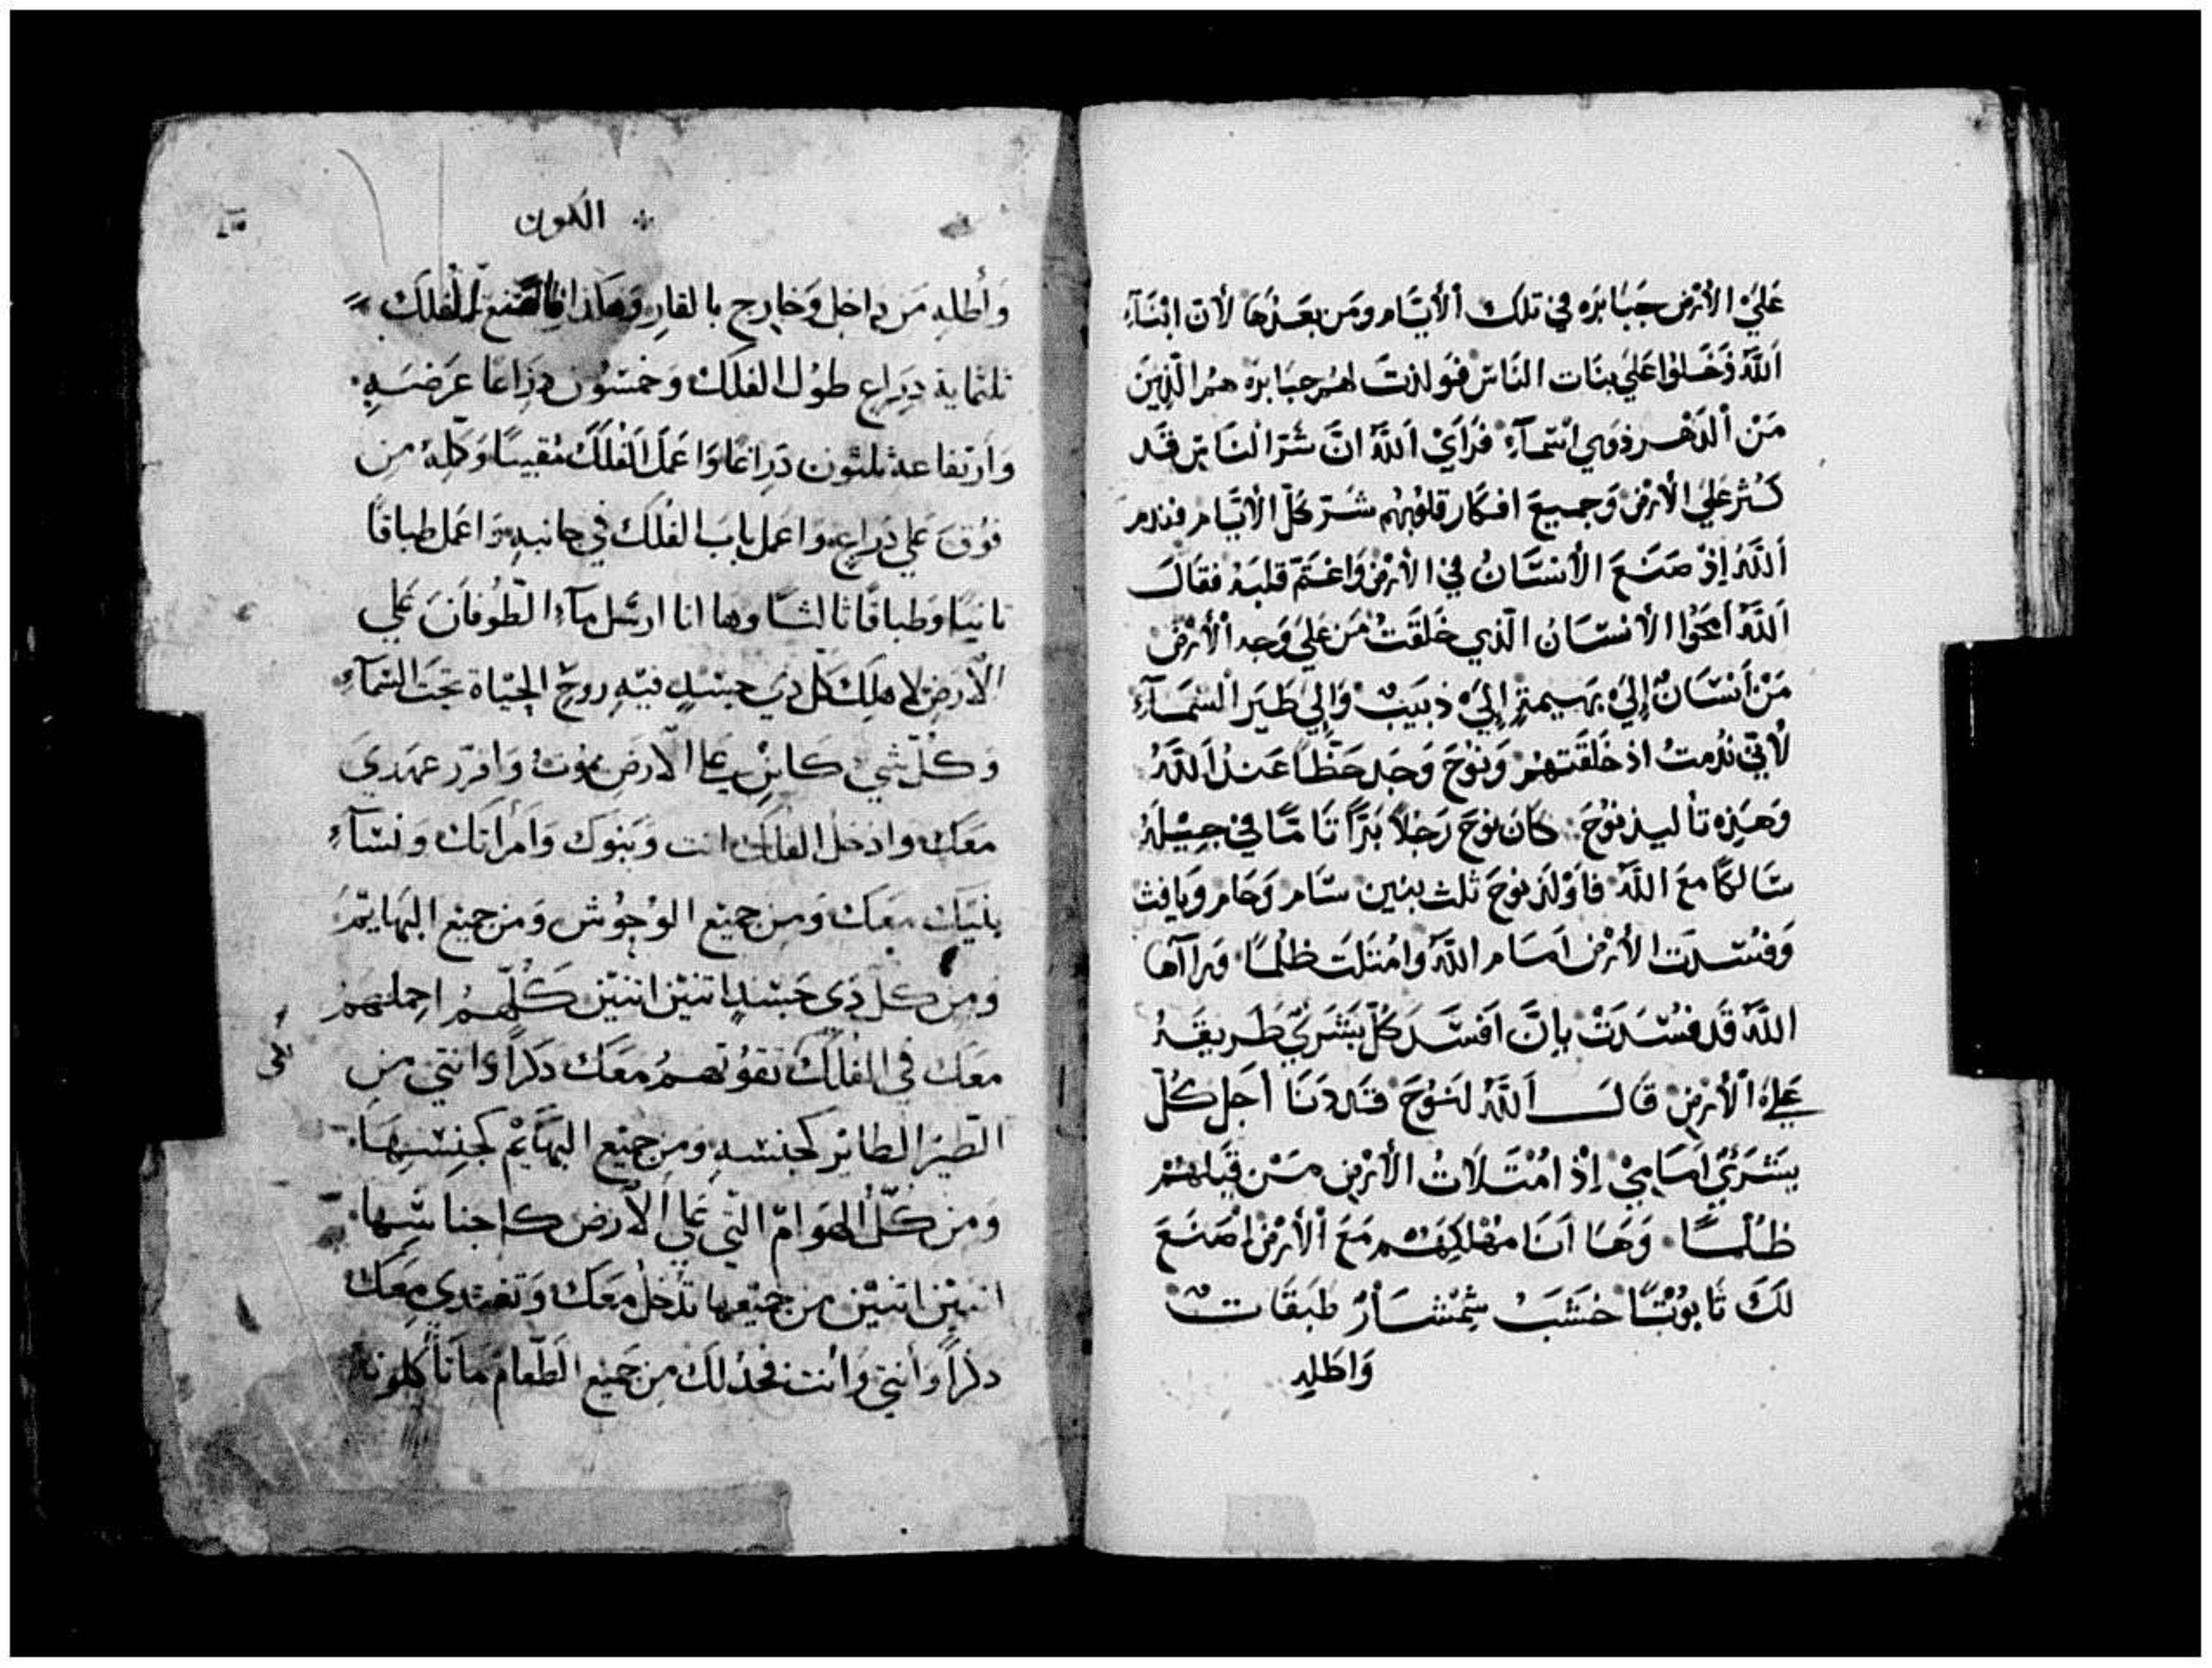 عَليَ الأرْض جَبَابرَه في تلك الأيَّام ومَن بعَدْهَا لأن ابْنَآءِ
اَللَّه دَخَلوا عَلي بنَات النَاسْ فوَلدَتَ لهُم جبَابرَه هُم الّذِينَ
مَنْ الدَهْر ذوَي اسْمآءِ فرَايْ اَللَّهُ انَّ شَرّ النَاسْ قَد
كَثُر عَليَ الأرْض وَجميعَ افكَار قلوُبهُم شَرّ كلّ الأيَّام فندم
اَللَّهُ إذْ صَنَعَ الأنسَانُ في الأرْض وَاغتَمّ قلبَهُ فقَالَ
اَللَّهُ اَمحُوا الأنسَانُ الّذي خَلقَتُ مَن عَليَ وَجه الأرْض
مَنْ أنسَان إليَ بَهيمَةٍ إليَ دبَيَبٌ وَاِلي طَيَر السَمَآءِ
لأنّي ندُمتُ اذ خَلقَتهُم وَنوُحَ وَجَد حَظّاً عَندُ اَللَّهُ
وَهَذِه تأليد نوُحَ كانَ نوُحَ رَجُلاً بَرّاً تَامّاً في جيْلهُ
سَالكاً مَع اَللَّه فاَوْلدَ نوُحَ ثلث بنين سَام وَحَام وَيافث
وَفسُدت الأرْض امَام اللَّه وامُتَلت ظلُماً ورَاآها
اللَّهُ قَد فسُدَتْ بانَّ اَفسَدَ كلّ بَشَريّ طَريقَهُ
عَليَ الأرْض قَالَ اَللَّهُ لنَوُحَ قَد دَنَا أجَل كُلّ
بشَرَيّ امَامِيْ إذْ امُتَلاَتُ الأرْض مَنْ قبَلهُم
ظلُماً وَهَا اَنَا مهُلكِهَم مَعَ الأرْض اصَنَعَ
لَكَ تَابوُتاً خشَبَ شِمْشَارْ طَبَقَات
وَاطَلِه
الكون
وَأطله مَن داخِل وَخارِج بالقارِ وَهَكذا فاصَنع الفلَكَ
ثلثماية دِرَاعٍ طوُل الفلَكْ وَخمسُون دِرَاعًا عرَضَهِ
وَارَتفاعه ثلثون دَرِاعًا وَاعمَل الفُلَكَ مُقبيًا وَكمِّلهُ مِن
فوُقَ عَلي دِرَاعٍ وَاعمَل بابَ الفُلكَ في جانبهِ وَاعمَل طباقًا
ثانيًا وَطباقًا ثالثًا وها انا ارسُل مآءِ الطُوفانَ عَلي
الأرَض لاهلِكَ كلَ دي جسَدٍ فيَهِ روحٌ الحيَاة تَحتَ السَمآءِ
وَكلّ شَيٍ كاينٍ عَلي الأرضِ يموُتُ وَاقرّر عهَدي
معَكَ وادخُل الفلكَ انت وَبَنوكَ وَامرأتك وَنسَآءِ
بنيَك معَكَ وَمِن جميَع الوُحوُش وَمن جميَع البهَايمُ
وَمِن كلّ ذِي جَسَدٍ اتنيَن اتنيَن كُلّهمُ احملهمُ
معَكَ في الفلَكَ تقوُتهمُ معَكَ دكرًا وَانتي مَن
الطيَر الطاير كجنسهِ وَمِن جميَع البهَايُم كجِنسِهَا
وَمن كُلّ الهَوَامّ التّي عَلي الأرَض كاجناسِها
اتنيَن اتنيَن من جميَعها تدَخل معَكَ وَتغتدي معَكَ
دكرًا وَأنتي وَانت فخدُ لكَ مِن جَميَع الطَعام مَا تأكلونهُ